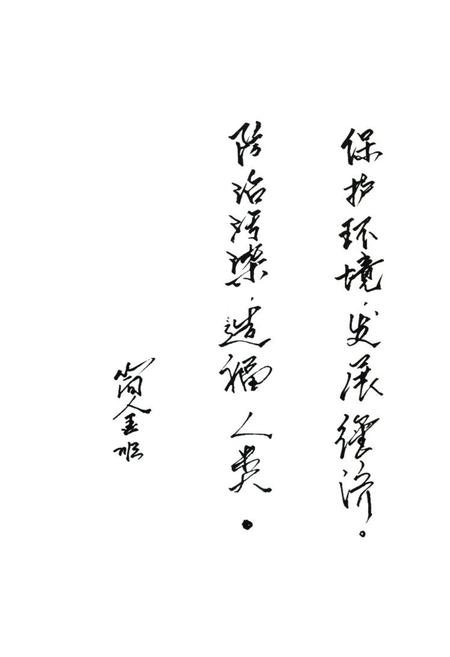 保护环境,发展經济。
防治污染,造福人类。
简金顺